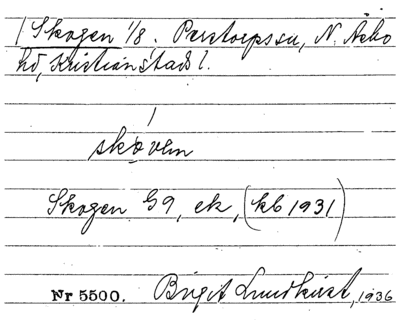 / Skogen 1/8. Perstorps sn, N. Åsbo
hd, Kristianstads l.
skoven
Skogen G9, ek, (kb 1931)
Nr 5500. Birgit Lundkvist, 1936